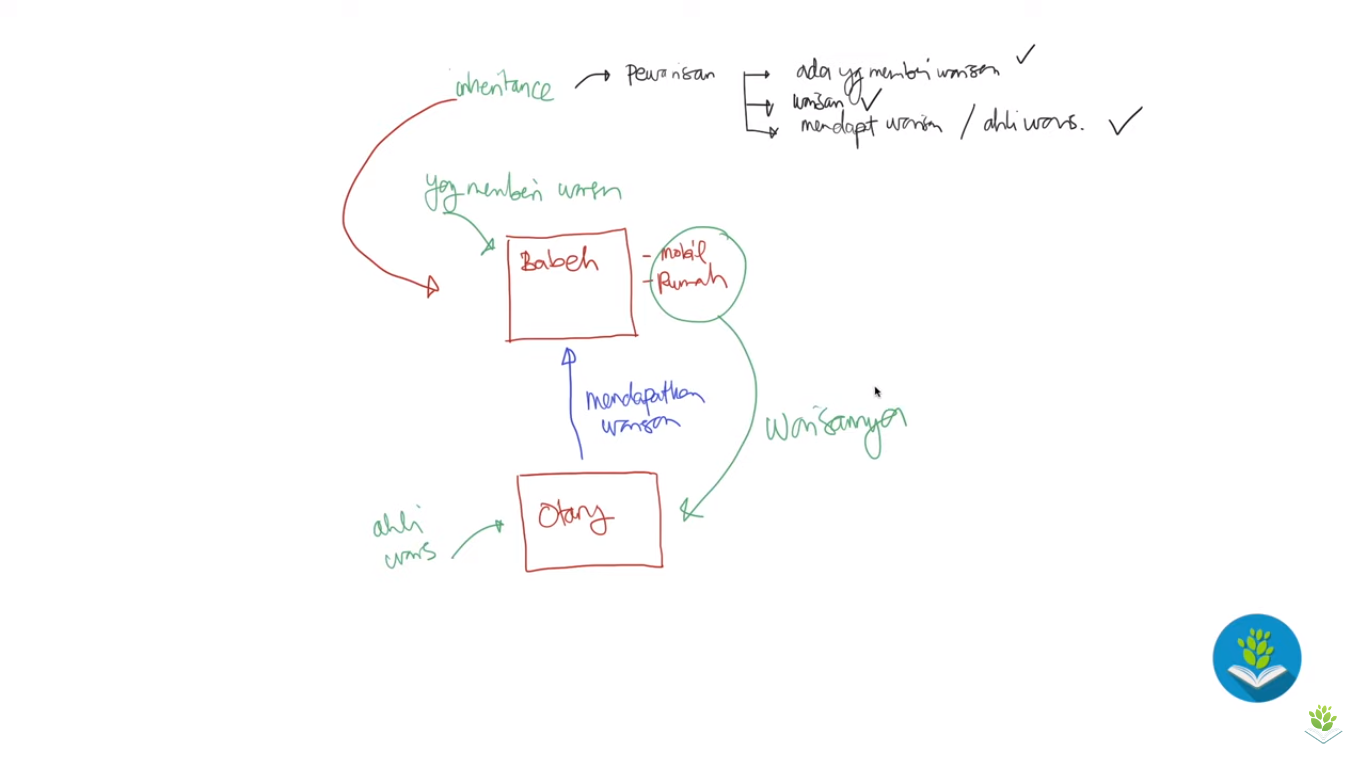 inheritance
Pewarisan
ada yg memberi warisan
warisan
mendapt warisan / ahli waris.
yg memberi warisan
Babeh
- mobil
- Rumah
mendapatkan
warisan
warisannya
Otang
ahli
waris